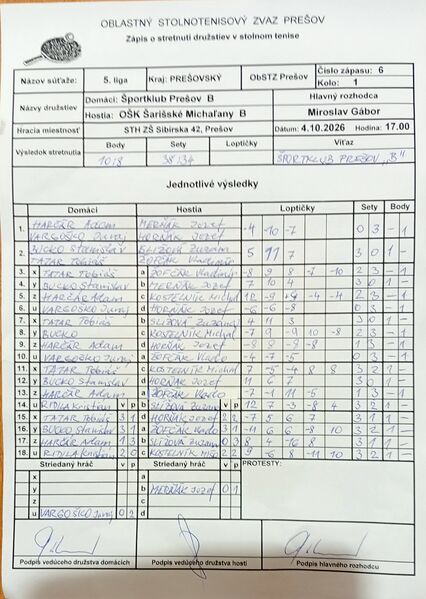 OBLASTNÝ STOLNOTENISOVÝ ZVÄZ PREŠOV
Zápis o stretnutí družstiev v stolnom tenise
Názov súťaže: 5. liga Kraj: PREŠOVSKÝ ObSTZ Prešov Číslo zápasu: 6
Kolo: 1
Názvy družstiev Domáci: Športklub Prešov B Hlavný rozhodca
Hostia: OŠK Šarišské Michaľany B Miroslav Gábor
Hracia miestnosť STH ZŠ Sibírska 42, Prešov Dátum: 4.10.2026 Hodina: 17.00
Výsledok stretnutia Body Sety Loptičky Víťaz
10:8 38:34 ŠPORTKLUB PREŠOV „B"
Jednotlivé výsledky
Domáci Hostia Loptičky Sety Body
1. HARČÁR Adam MERŇÁK Jozef -4 -10 -7 0 3 - 1
VARGOŠKO Juraj HORŇÁK Jozef
2. BUCKO Stanislav SLIŽOVÁ Zuzana 5 11 7 3 0 1 -
TATAR Tobiáš ŽOFČÁK Vladimír
3. x TATAR Tobiáš a ŽOFČÁK Vladimír -8 9 8 -7 -10 2 3 - 1
4. y BUCKO Stanislav b MERŇÁK Jozef 7 10 4 3 0 1 -
5. z HARČÁR Adam c KOSTELNÍK Michal 2 3 - 1
6. u VARGOŠKO Juraj d HORŇÁK Jozef -6 -6 -8 0 3 - 1
7. x TATAR Tobiáš b SLIŽOVÁ Zuzana 4 11 3 3 0 1 -
8. y BUCKO c KOSTELNÍK Michal -7 -9 -10 -8 2 3 - 1
9. z HARČÁR Adam d HORŇÁK Jozef -8 8 -8 -8 1 3 - 1
10. u VARGOŠKO Juraj a ŽOFČÁK Vlado -4 -7 -5 0 3 - 1
11. x TATAR Tobiáš c KOSTELNÍK Michal 7 -5 -4 8 8 3 2 1 -
12. y BUCKO Stanislav d HORŇÁK Jozef 11 6 7 3 0 1 -
13. z HARČÁR Adam a ŽOFČÁK Vlado 1 3 - 1
14. u v p b SLIŽOVÁ Zuzana v p 12 7 -8 4 3 2 1 -
15. x TATAR Tobiáš 3 1 d HORŇÁK Jozef 2 2 -7 5 6 7 3 1 1 -
16. y BUCKO Stanislav 3 1 a ŽOFČÁK Vlado 3 1 -11 6 6 -8 10 3 2 1 -
17. z HARČÁR Adam 1 3 b SLIŽOVÁ Zuzana 0 3 8 4 -16 8 3 1 1 -
18. u 2 0 c KOSTELNÍK 2 2 9 -6 8 -11 10 3 2 1 -
Striedaný hráč v p Striedaný hráč v p PROTESTY:
x a
y b MERŇÁK Jozef 0 1
z c
u VARGOŠKO Juraj 0 2 d
Podpis vedúceho družstva domácich Podpis vedúceho družstva hostí Podpis hlavného rozhodcu